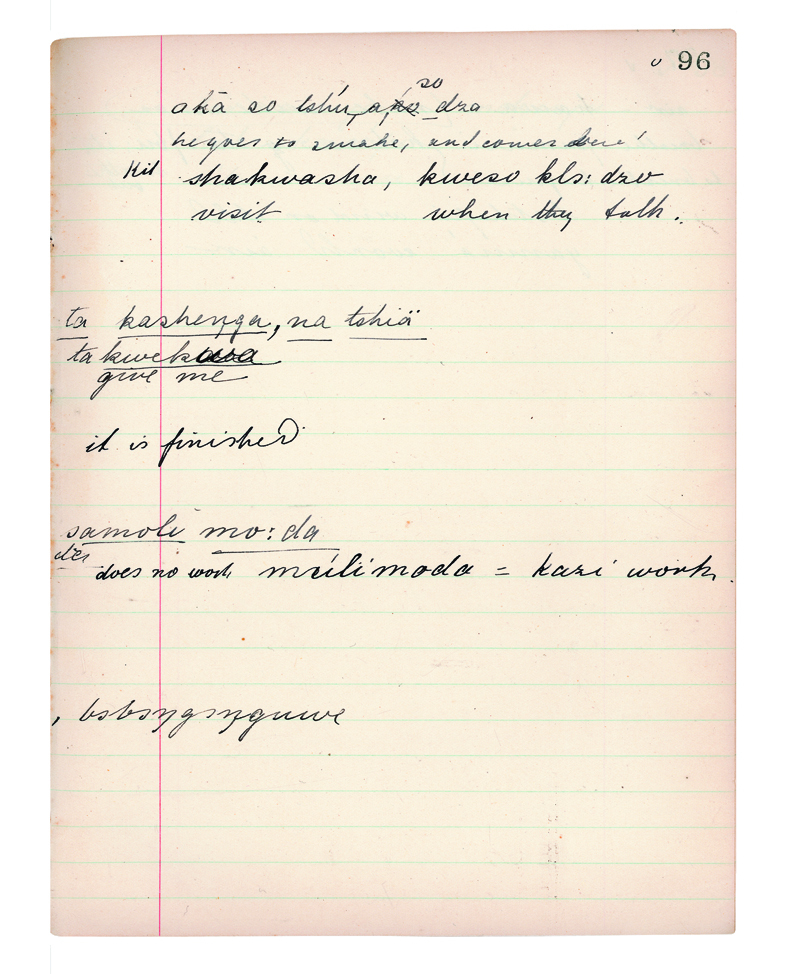 96
so
akā so tshú, a dza
he goes to smoke, and comes here!
Kil shakwasha, kweso kls: dzo
visit when they talk.
ta kasheŋga, na tshiä
ta kwek
give me
it is finished
samoli mo: da
does no work mcílímoda = kazi work.
, bsbsŋgsŋguwe